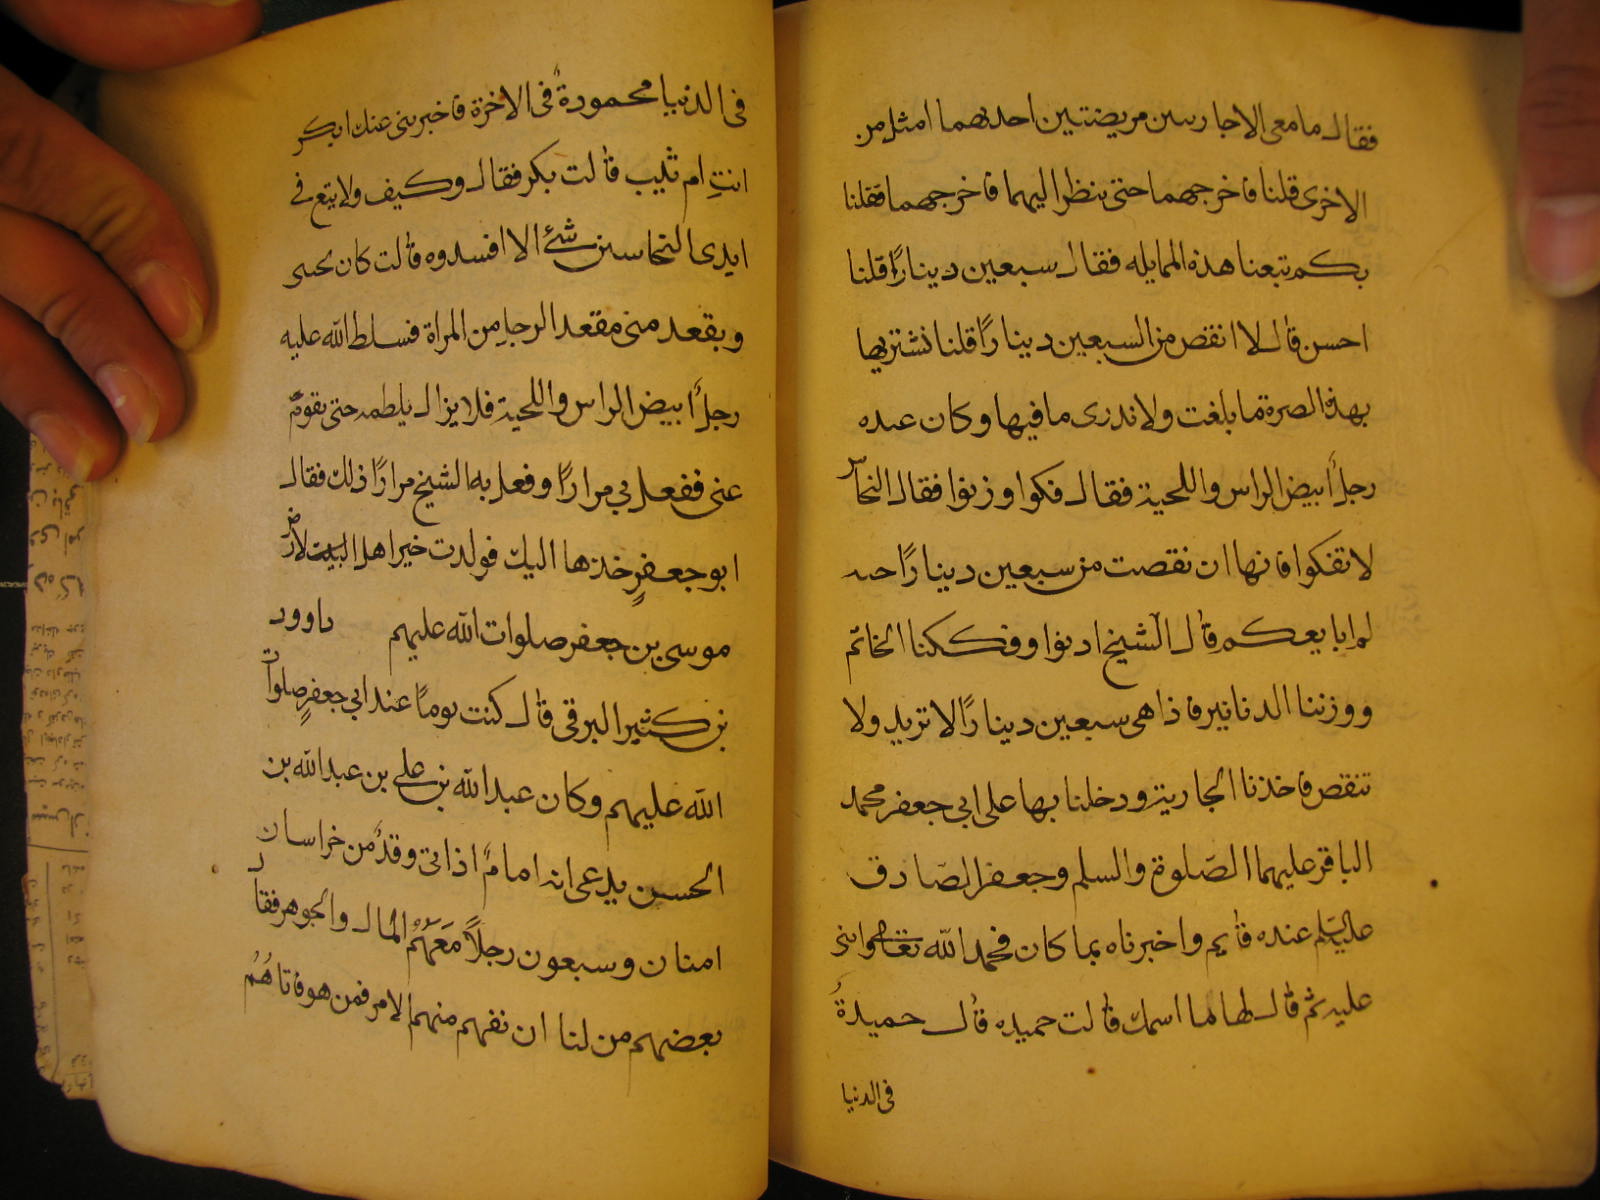 فقال ما معى الا جاريتين مريضتين احدىهما امثل من
الاخرى قلنا فاخرجهما حتى ننظر اليهما فاخرجهما فقلنا
بكم تبعنا هذه المايله فقال سبعين دينارًا قلنا
احسن قال لا انقص من السبعين دينارًا قلنا نشتريها
بهذه الصرة ما بلغت ولا ندرى ما فيها وكان عنده
رجلٌ ابيض الراس واللحية فقال فكوا وزنوا فقال النخاس
لا تفكوا فانها ان نقصت من سبعين دينارًا حبه
لم ابايعكم قال الشيخ ادنوا وفككنا الخاتم
ووزننا الدنانير فاذا هى سبعين دينارًا لا تزيد ولا
تنقص فاخذنا الجارية ودخلنا بها على ابى جعفر محمد
الباقر عليهما الصّلوة والسلم وجعفر الصّادق
عليه السّلم عنده قايم واخبرناه بما كان فحمد الله تعالى واثنى
عليه ثم قال لها لما اسمك قالت حميده قال حميدةٌ
فى الدنيا
فى الدنيا محمودةٌ فى الاخرة فاخبرينى عنك ابكر
انتِ ام ثيب قالت بكر فقال وكيف ولا يقع فى
ايدى النخاسين شئ الا افسدوه قالت كان يجيى
ويقعد منى مقعد الرجل من المراة فسلط الله عليه
رجلًا ابيض الراس واللحية فلا يزال يلطمه حتى يقومٌ
عنى ففعل بى مرارًا وفعل به الشيخ مرارًا ذلك فقال
ابو جعفرٍ خذها اليك فولدت خير اهل الارض
موسى بن جعفر صلوات الله عليهم داوود
بن كثير البرقى قال كنت يومًا عند ابى جعفرٍ صلوات
الله عليهم وكان عبد الله بن على بن عبد الله بن
الحسن يدعى انه امامٌ اذ اتى وفدٌ من خراسان
اثنان وسبعون رجلًا مَعَهُمْ المال والجوهر فقال
بعضهم من لنا ان نفهم منهم الامر فمن هو فاتاهُمُ